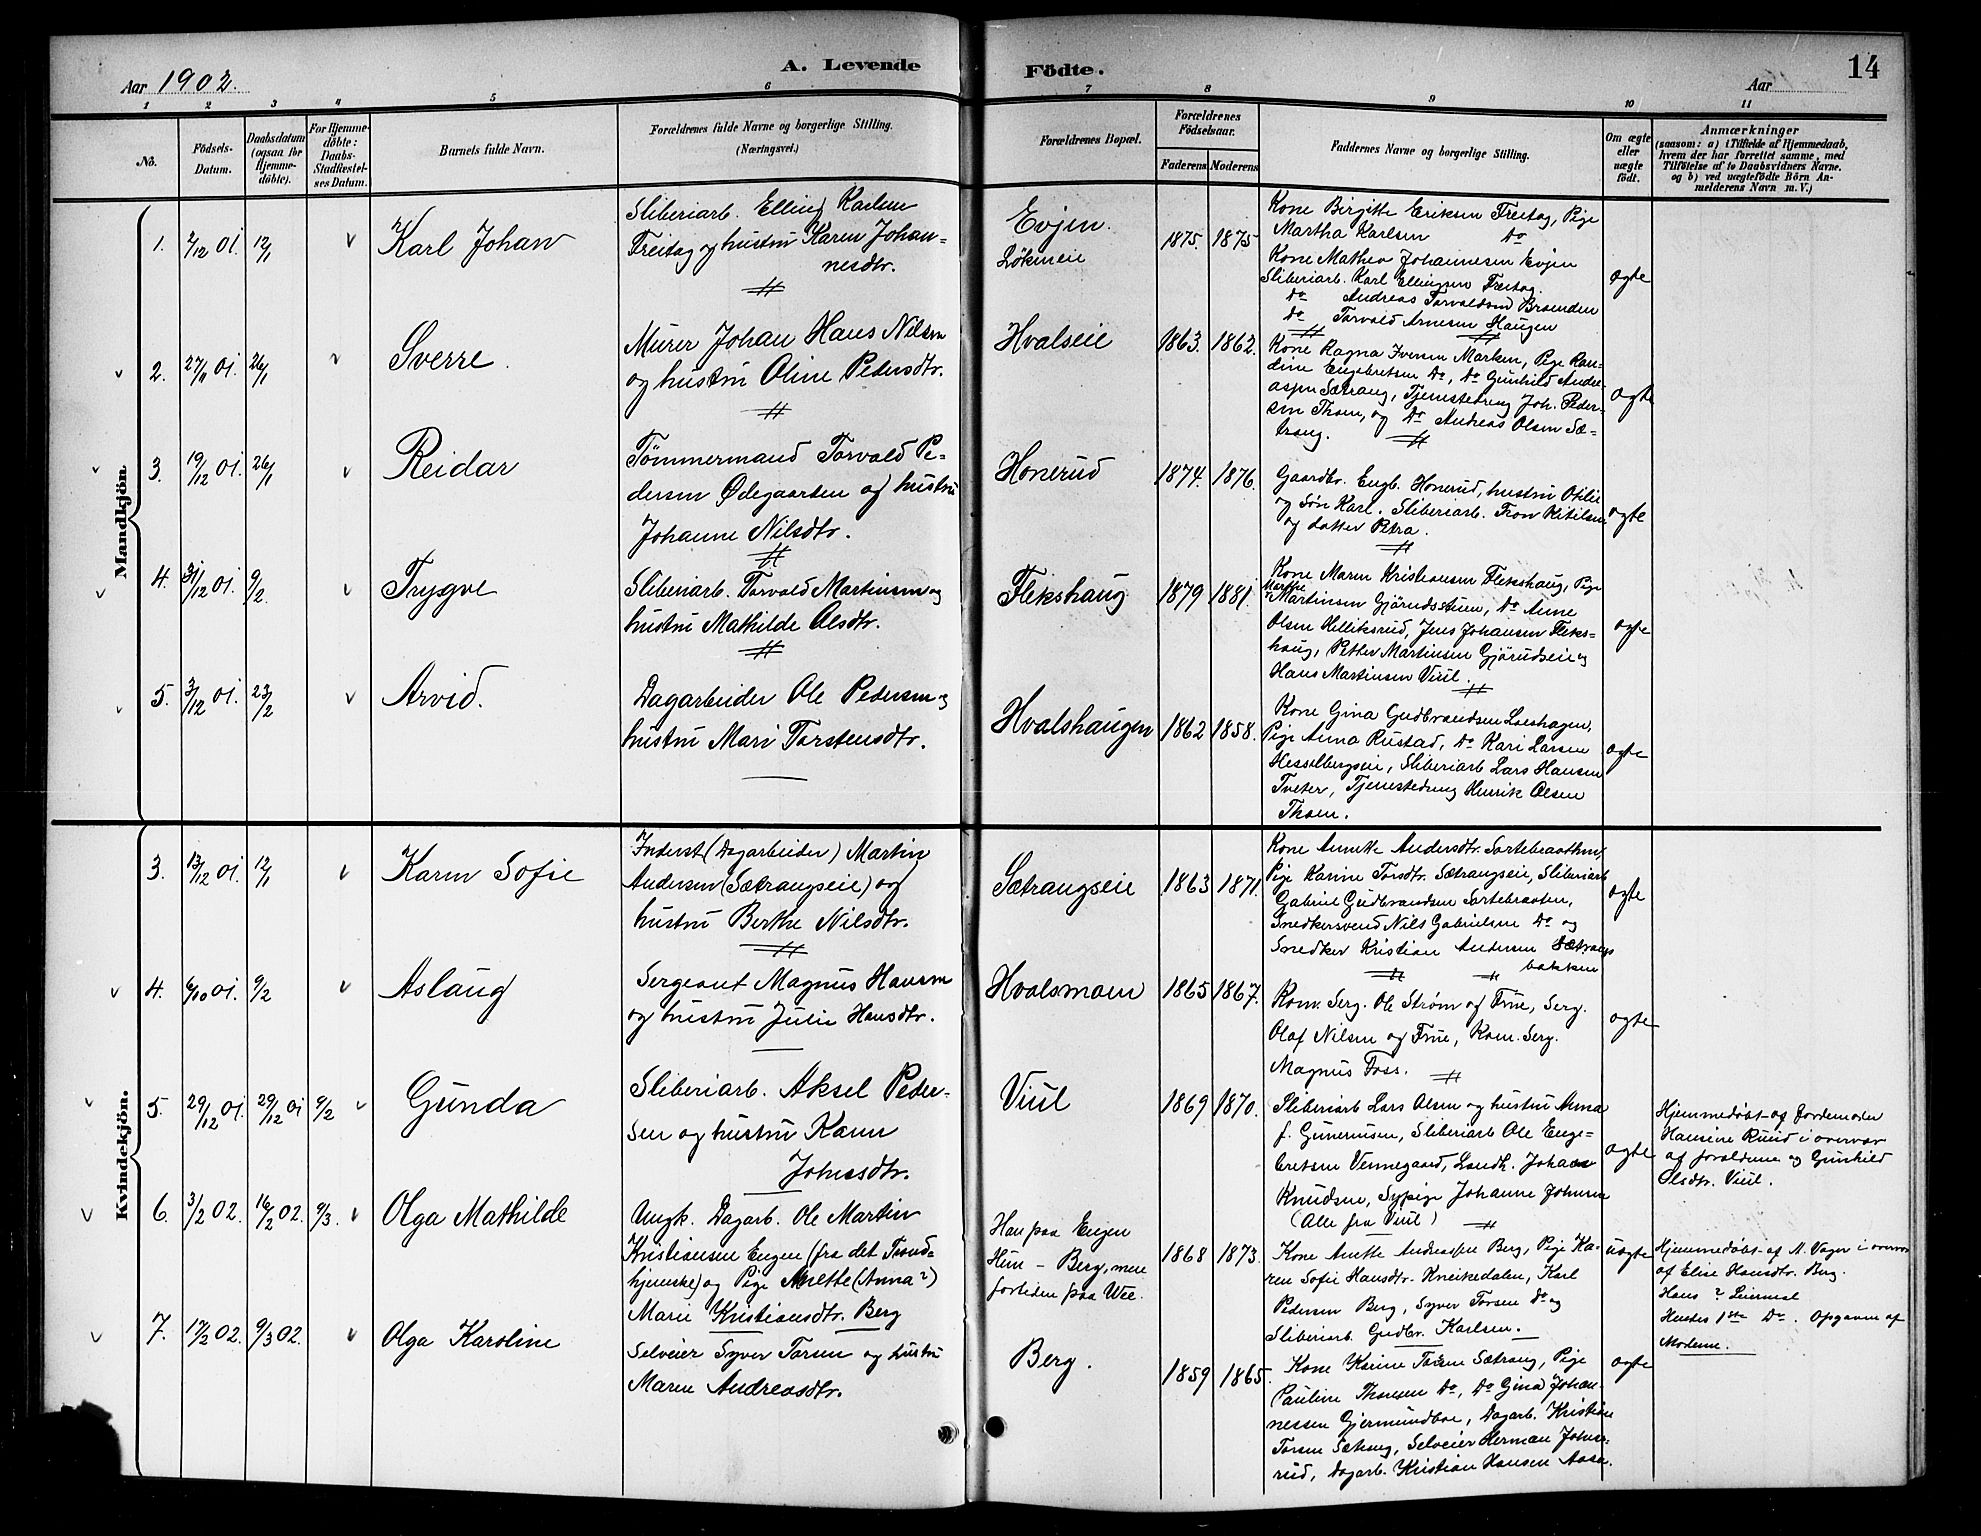 Aar 1902.
A. Levende
Födte.
Aar
14
1 2 3 4 5 6
7 8 9 10 11
No.
Födsels-
Datum.
Daabsdatum
(ogsaa for
Hjemme-
döbte).
For Hjemme-
döbte:
Daabs-
Stadfæstel-
ses Datum.
Barnets fulde Navn.
Forældrenes fulde Navne og borgerlige Stilling.
(Næringsvei.)
Forældrenes Bopæl.
Forældrenes
Födselsaar.
Faderens
Moderens
Faddernes Navne og borgerlige Stilling.
Om ægte
eller
uægte
født.
Anmærkninger
(saasom: a) i Tilfælde af Hjemmedaab,
hvem der har forrettet samme, med
Tilföielse af to Daabsvidners Navne.
og b) ved uægtefödte Börn An-
melderens Navn m. V.)
Mandkjön
1. 2/12 01. 12/1
Karl Johan
Sliberiarb. Elling Karlsen
Freitag og hustru Karen Johan-
nesdtr.
Evjen.
Løkmeie
1875. 1875
Kone Birgitte Eriksen Freitag, Pige
Martha Karlsen Do
Kone Mathea Johannesen Evjen
Sliberiarb. Karl Ellingsen Freitag.
Do Andreas Torvaldsen Braenden
Do Torvald Arnesen Haugen
ægte
2. 27/11 01. 26/1
Sverre
Murer Johan Hans Nilsen
og hustru Oline Pedersdtr.
Hvalseie
1863. 1862.
Kone Ragna Iversen Marken, Pige Ran-
dine Engebretsen Do, Do Gunhild Andre-
asen Sætrang, Tjenestedreng Joh. Peder-
sen Thoen, og Do Andreas Olsen Sæ-
trang.
ægte
3. 19/12 01. 26/1
Reidar
Tömmermand Torvald Pe-
dersen Ødegaarden og hustru
Johanne Nilsdtr.
Honerud
1874. 1876.
Gaardbr. Engb. Honerud, hustru Otilie
og Søn Karl. Sliberiarb. Tron Kitilsen
og datter Petra.
ægte
4. 31/12 01. 9/2.
Trygve
Sliberiarb. Torvald Martinsen og
hustru Mathilde Olsdtr.
Flekshaug
1879 1881.
Kone Maren Kristiansen Flekshaug, Pige
Marthe
Martinsen Gjörudsstuen, Do Anne
Olsen Helliksrud, Jens Johansen Fleks-
haug, Petter Martinsen Gjörudseie og
Hans Martinsen Viul.
ægte
5. 3/12 01. 23/2
Arvid.
Dagarbeider Ole Pedersen og
hustru Mari Torstensdtr.
Hvalshaugen
1862 1858.
Kone Gina Gudbrandsen Loeshagen,
Pige Anna Rustad, Do Kari Larsen
Hesselbergseie, Sliberiarb Lars Hansen
Tveter, Tjenestedreng Henrik Olsen
Thoen.
ægte
Kvindekjön.
3. 13/12 01. 12/1
Karen Sofie
Inderst (Dagarbeider) Martin
Andersen (Sætrangseie) og
hustru Berthe Nilsdtr.
Sætrangseie
1863 1871.
Kone Annette Andersdtr. Sortebraathen,
Pige Karine Torsdtr. Sætrangseie, Sliberiarb
Gabriel Gudbrandsen Sortebraaten,
Snedkersvend Nils Gabrielsen Do og
Snedker Kristian Andersen Sætrangs
bakken
ægte
4. 6/10 01. 9/2
Aslaug
Sergeant Magnus Hansen
og hustru Julie Hansdtr.
Hvalsmoen
1865 1867.
Kom. Serg. Ole Strøm og Frue, Serg.
Olaf Nilsen og Frue, Kom. Serg.
Magnus Foss.
ægte
5. 29/12 01. 29/12 01 9/2
Gunda
Sliberiarb. Aksel Peder-
sen og hustru Karen
Johnsdtr.
Viul
1869 1870.
Sliberiarb Lars Olsen og hustru Anna
f. Gunerusen, Sliberiarb Ole Enge-
bretsen Vennegaard, Landh. Johan
Knudsen, Sypige Johanne Johnsen
(Alle fra Viul)
ægte
Hjemmedøbt af Jordemoder
Hansine Ruud i overvær
af forældrene og Gunhild
Olsdtr. Viul.
6. 3/2 02. 16/2 02. 9/3.
Olga Mathilde
Ungk. Dagarb. Ole Martin
Kristiansen Engen (fra det Trond-
hjemske) og Pige Anette (Anna?)
Marie Kristiansdtr. Berg
Han paa Engen
Hun - Berg, men
fortiden paa Wee.
1868 1873.
Kone Anette Andreassen Berg, Pige Ka-
ren Sofie Hansdtr. Kneikedalen, Karl
Pedersen Berg, Syver Torsen Do og
Sliberiarb. Gudbr. Karlsen.
uægte
Hjemmedøbt af A. Vager i overvær
af Elise Hansdtr. Berg.
Hans ? Leiermaal
Hendes 1ste Do. Opgaven af
Moderen.
7. 17/2 02. 9/3 02.
Olga Karoline
Selveier Syver Torsen og hustru
Maren Andreasdtr.
Berg.
1859 1865.
Kone Karine Torsen Sætrang, Pige
Pauline Thoresen Do, Do Gina Johan-
nessen Gjermundboe, Dagarb. Kristian
Torsen Sætrang, Selveier Herman Johns-
rud, Dagarb. Kristian Hansen Aasa.
ægte